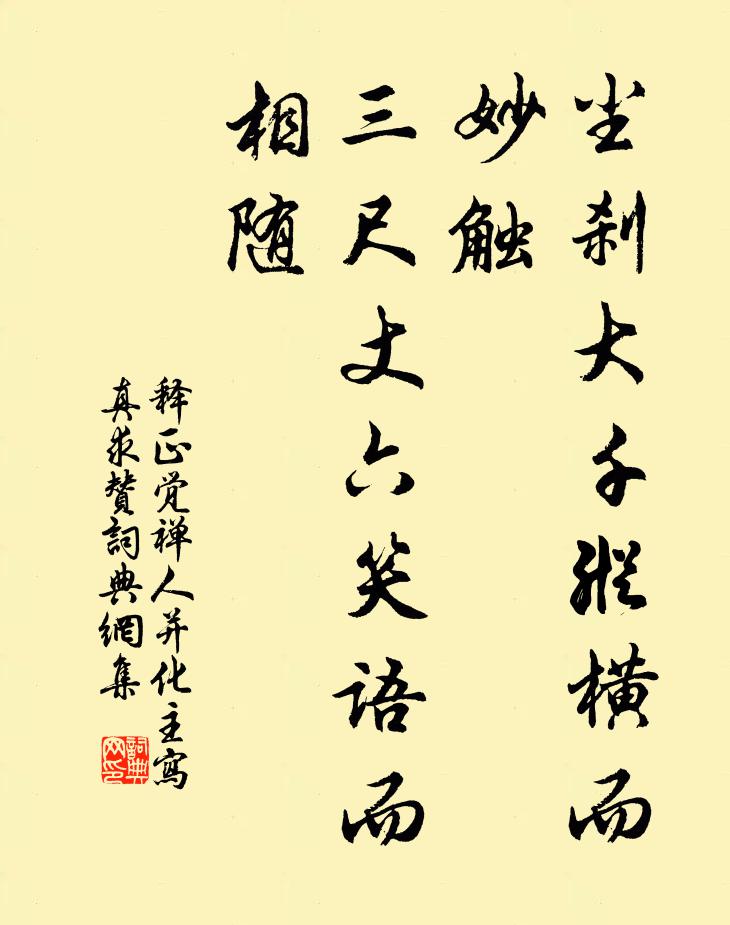 尘刹大千纵横而
妙触
三尺丈六笑语而
相随
释正觉禅人并化主写
真求赞詞典網集
詞典
网印